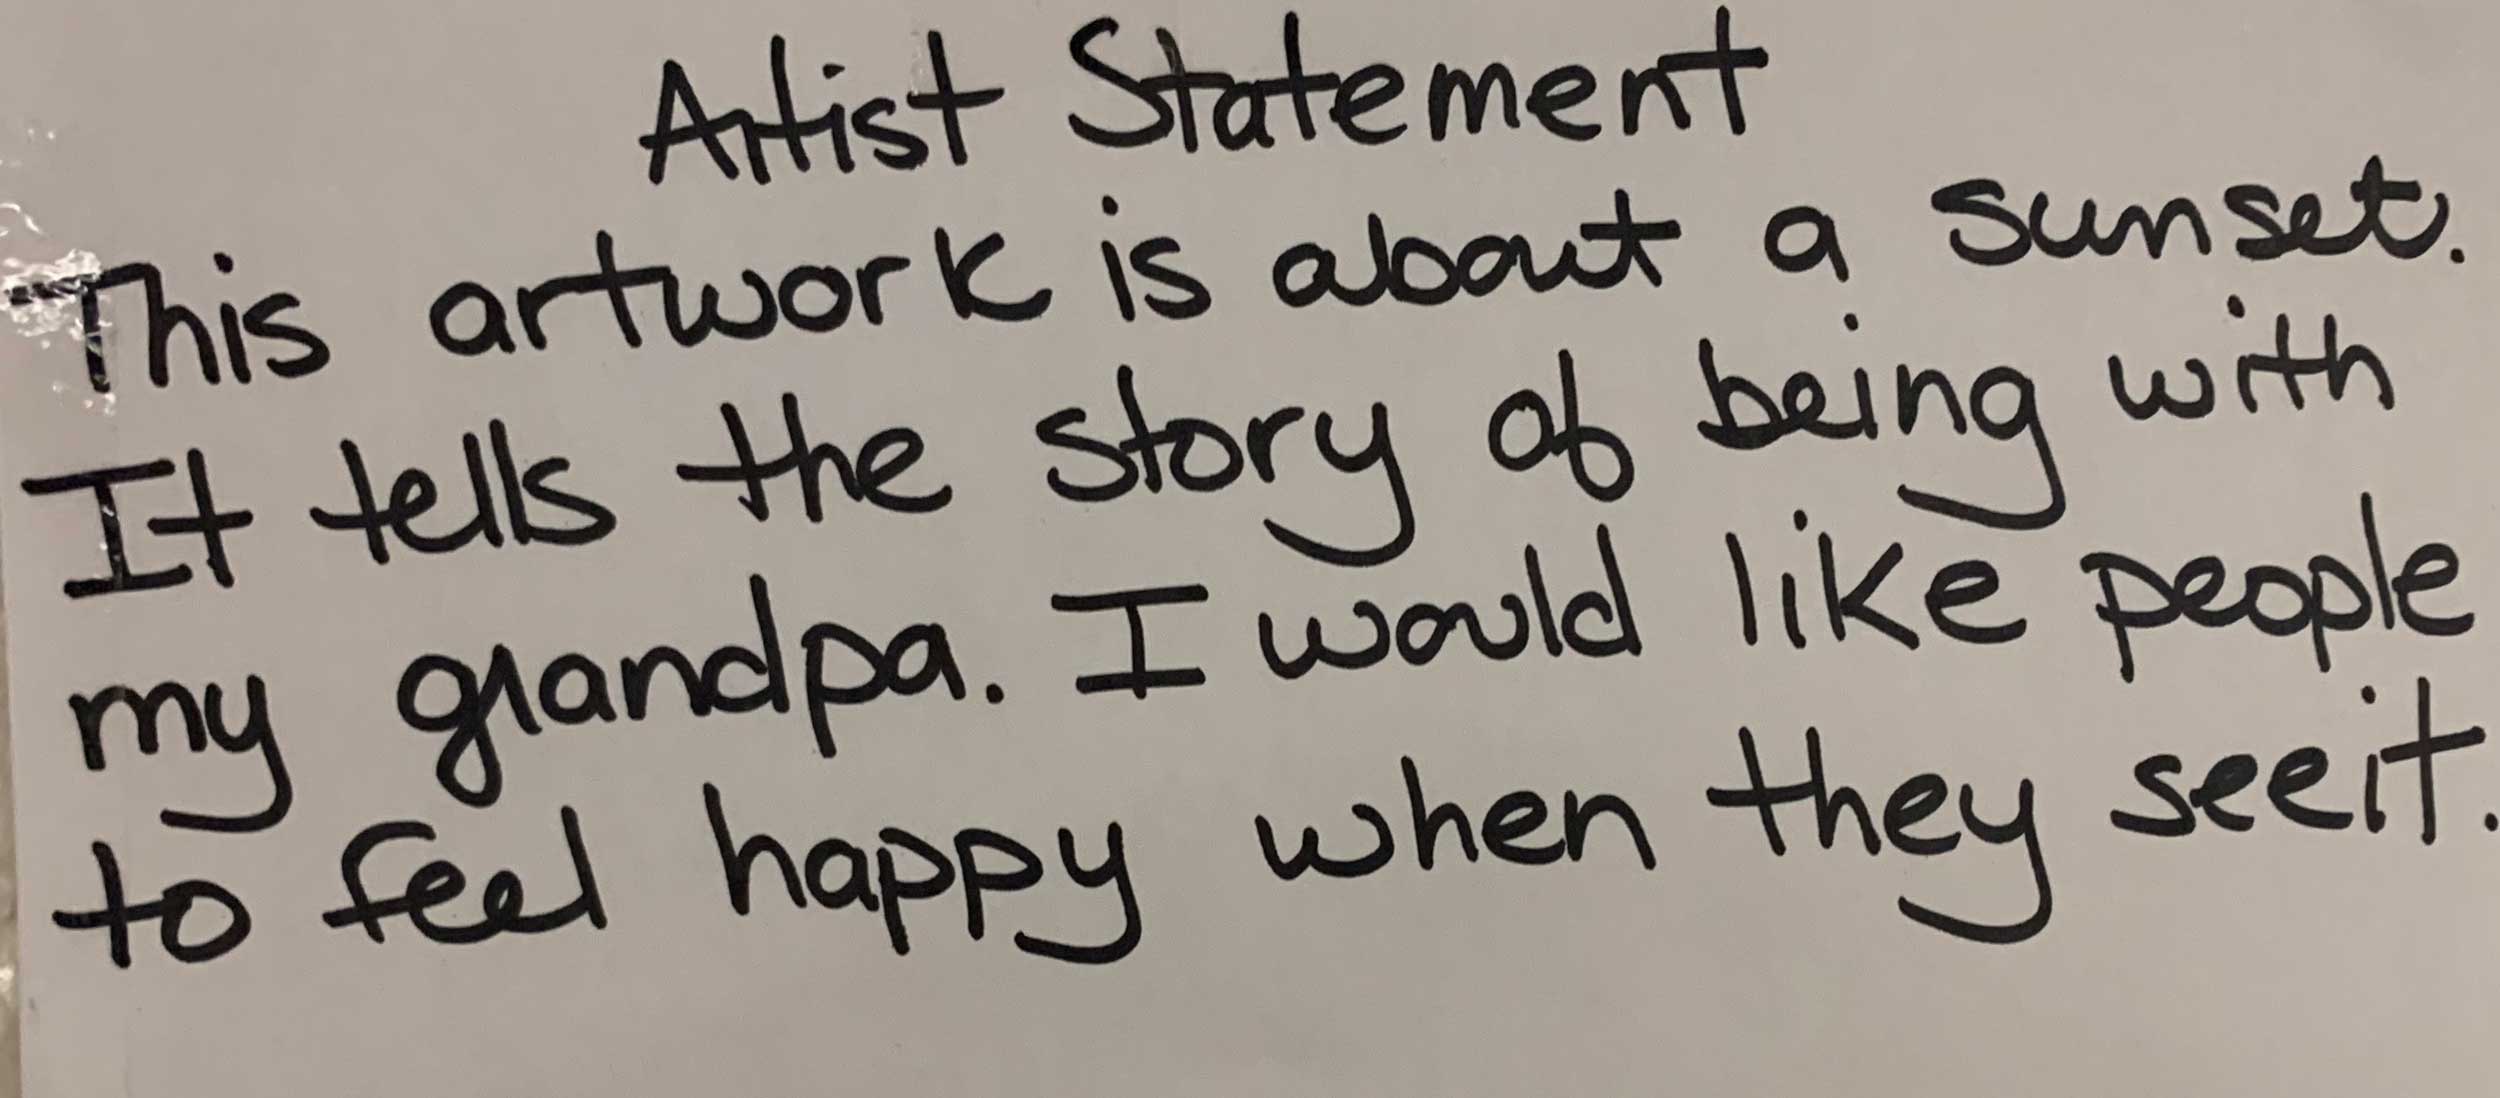 Artist Statement
This artwork is about a sunset.
It tells the story of being with
my grandpa. I would like people
to feel happy when they see it.